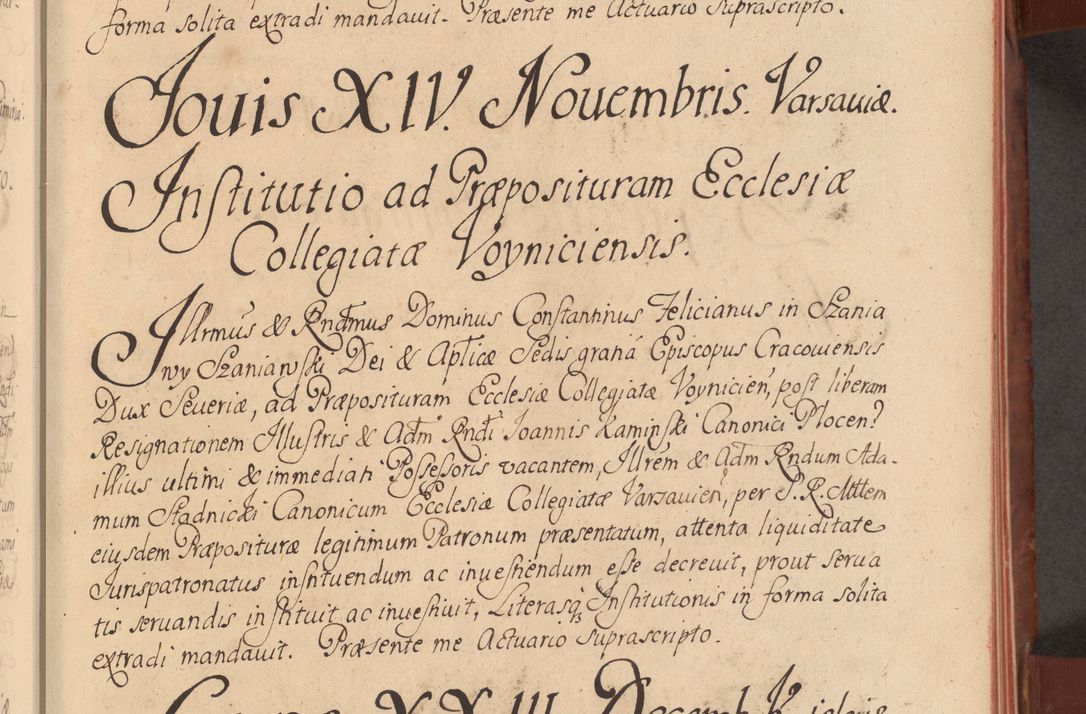 forma solita extradi mandauit. Præsente me Actuario Suprascripto.
Jouis XIV. Nouembris. Varsauiæ.
Institutio ad Præposituram Ecclesiæ
Collegiatæ Voyniciensis.
Illrmus & Rndmus Dominus Constantinus Felicianus in Szania
wy Szaniawski Dei & Aplicæ Sedis gratiâ Episcopus Cracouiensis
Dux Seueriæ, ad Præposituram Ecclesiæ Collegiatæ Voynicien, post liberam
Resignationem Illustris & Adm Rndi Joannis Kaminski Canonici Plocen?
illius ultimi & immediati Possessoris vacantem, Illrem & Adm Rndum Ada-
mum Stadnicki Canonicum Ecclesiæ Collegiatæ Varsauien, per S. R. Mttem
eiusdem Præposituræ legitimum Patronum præsentatum, attenta liquiditate
Jurispatronatus instituendum ac inuestiendum esse decreuit, prout serua
tis seruandis instituit ac inuestiuit, Literasq Institutionis in forma solita
extradi mandauit. Præsente me Actuario Suprascripto.
XXIII. Decemb.